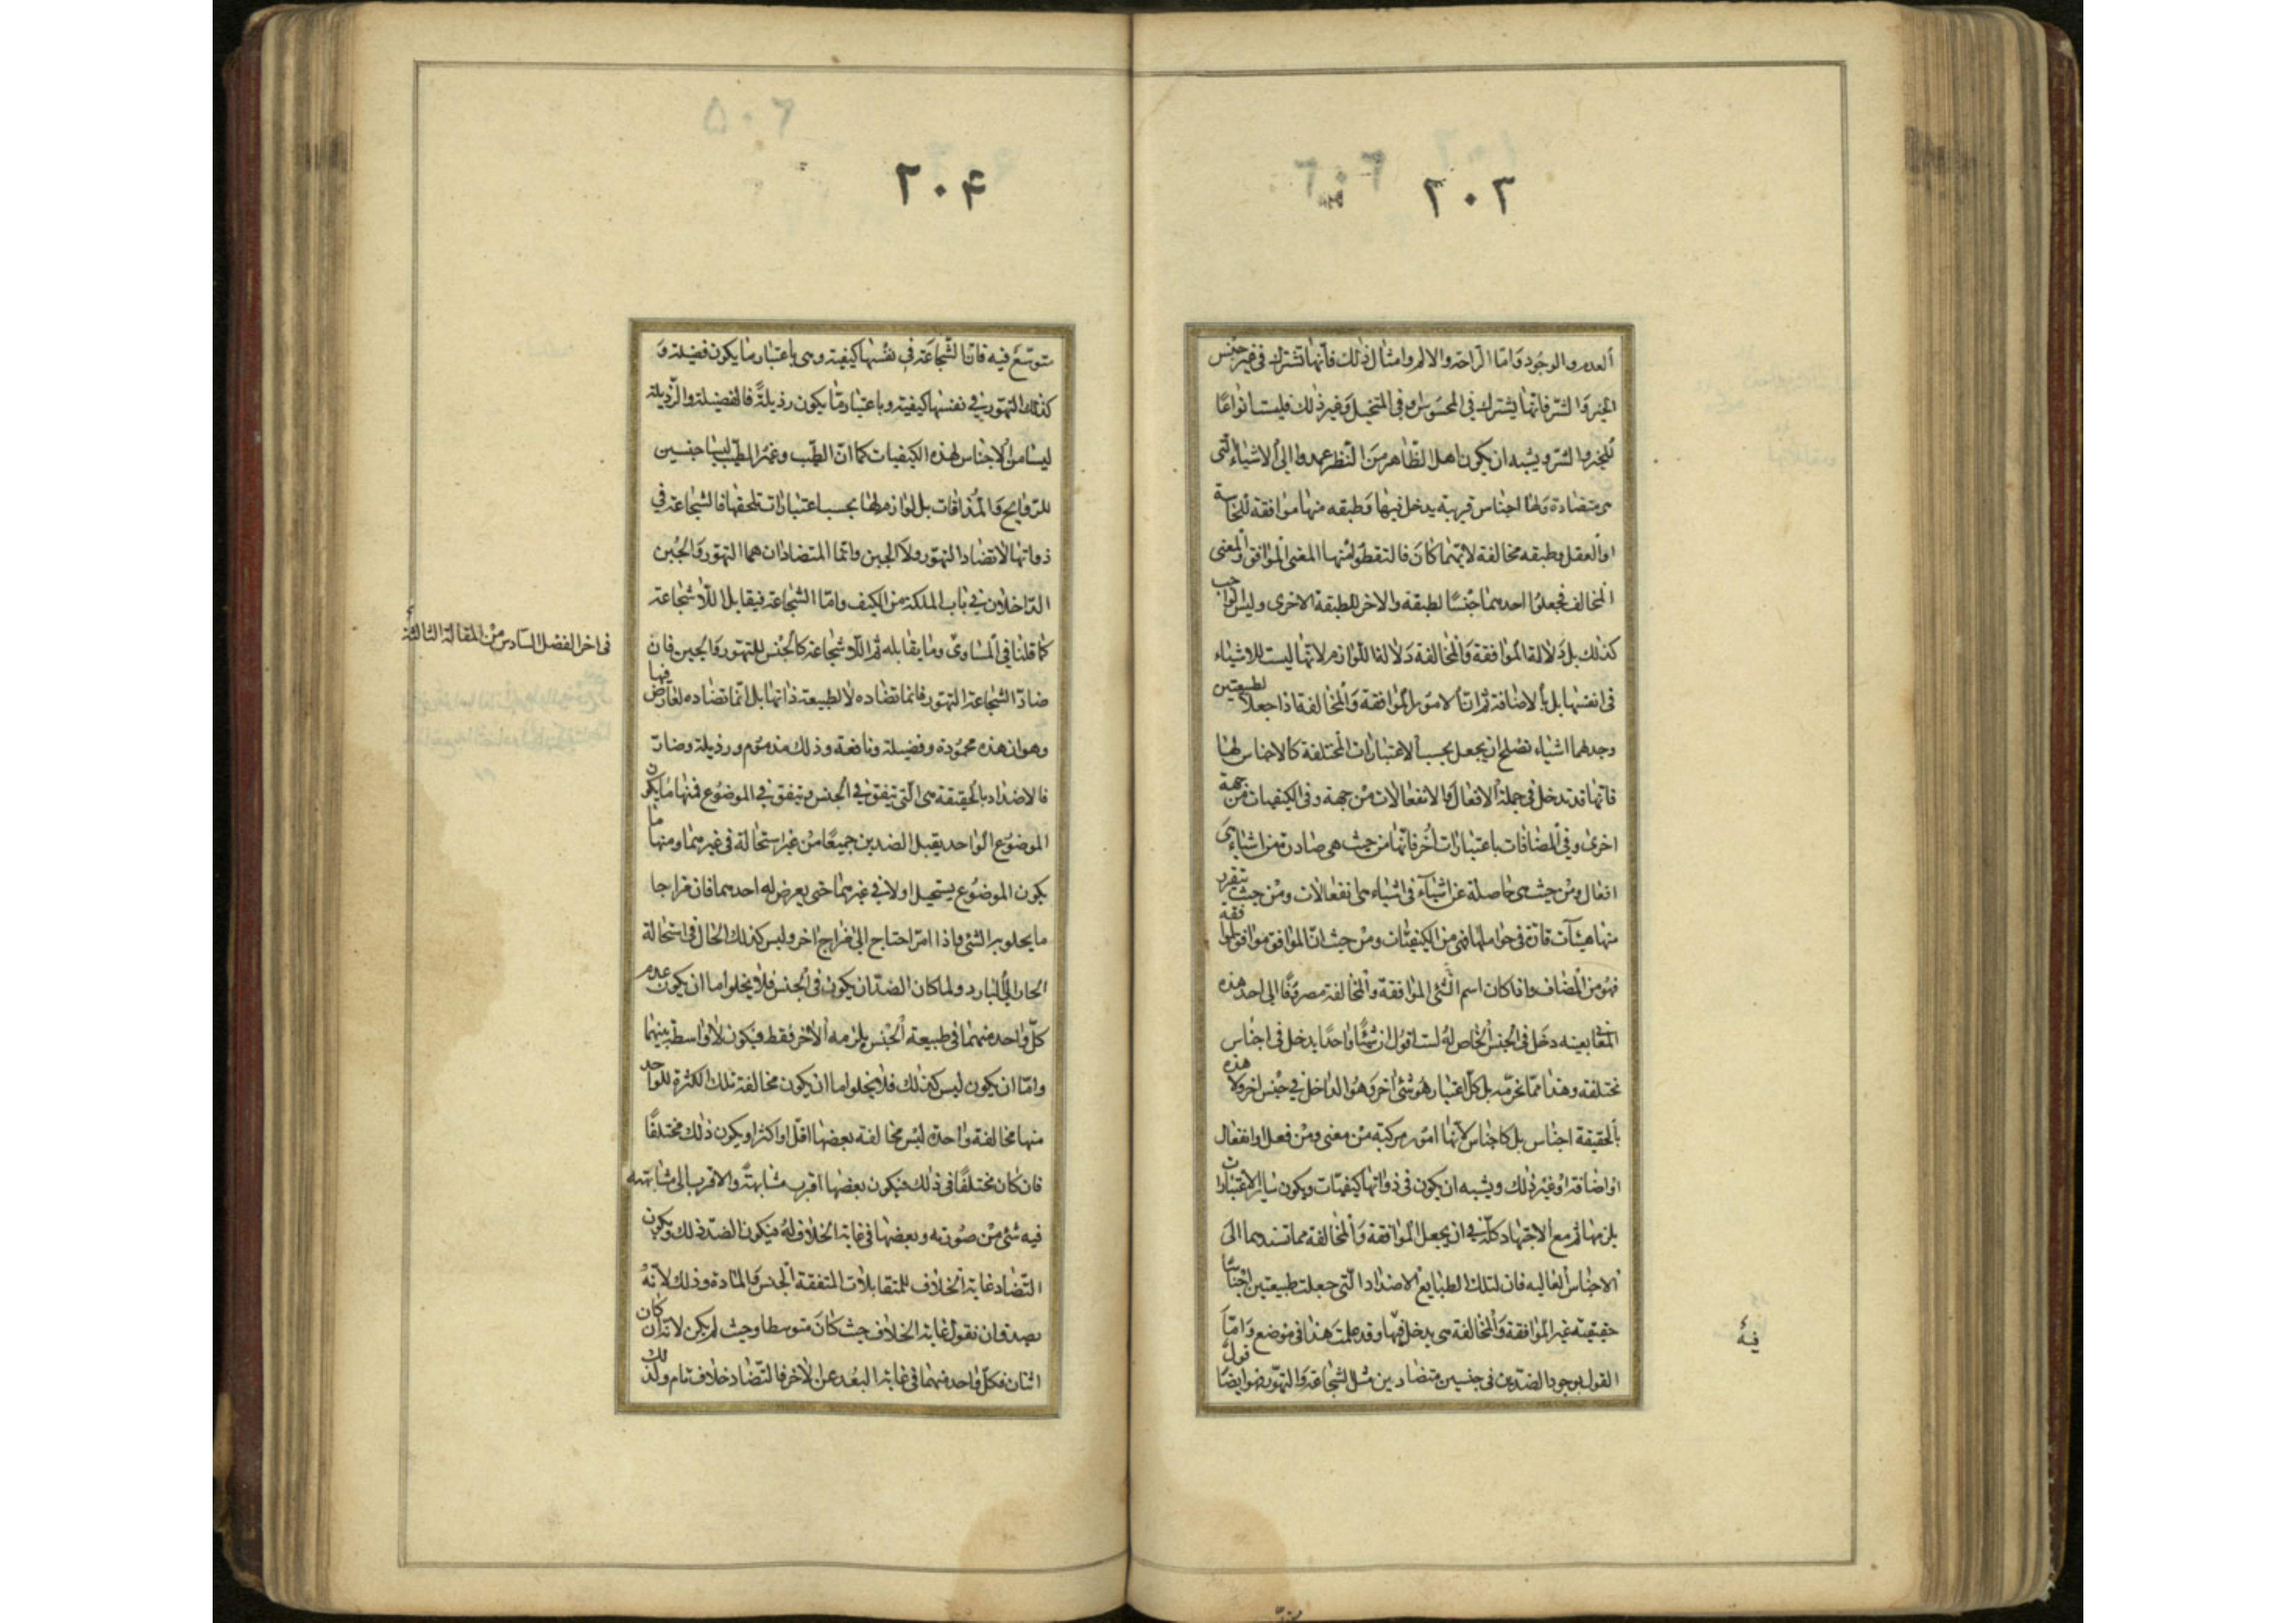 ٢٠٣
ألعدم والوجود وَامّا الرّاحة والالم وامثال ذٰلك فانّهٰا تشترك فى غير جنس
الخير وَالشرّ فانّهٰا يشترك فى المحسُوس وفى المتخيل وَغير ذٰلك فليست انواعًا
للخير والشرّ ويشبه ان يكون اهل الظّاهر مِنَ النّظر عمدوا الى ألاشياءِ الّتى
هى متضادة وَلها اجناس قريبة يدخل فيهٰا وَطبقه منهٰا موٰافقة للحٰاسة
اوألعقل وطبقه مخالفة لايّهمٰا كٰانَ فالتقطوا منهٰا المعنى الموٰافق وٰالمعنى
المخالف فجعلوا احدهمٰا جنسًا لطبقة والاخر للطبقة الاخرى وليس الواجب
كذلك بل دَلالة المُوافقة وَالمخٰالفة دَلالة اللوٰازم لانّهٰا ليست للاشيٰاء
فى انفسهٰا بل بألاضٰافة ثم انّ ألامُور المُوافقة وَالمخٰالفة اذا جعلا لطبيعتين
وجد لهما اشيٰاء تصلح ان يجعل بحسب ألاعتبٰارات المختلفة كألاجناس لهٰا
فانّهٰا قد تدخل فى جملة ألافعال وَالانفعٰالات مِنْ جهة وفى الكيفيات مِن جهة
اخرىٰ وفى المضٰافات باعتبٰارات اُخر فانّهٰا من حيث هى صٰادرة من اشيٰاءَ هى
افعال ومِنْ حيث هى حٰاصلة عن اشيٰآءَ فى اشيٰاء هى انفعٰالات ومِنْ حيث تتقرر
منهٰا هيئآت قارّة فى حواملهٰا فهى من الكيفيّات ومِنْ حيث انّ الموٰافق موٰافق لموافقه
فهُو من المضاف واذا كان اسم الشّئ الموٰافقة وألمخٰالفة مصروفًا الى احد هذه
المعٰانى بعينه دخل فى الجنس الخٰاص لهُ لست اقول ان شيئًا وٰاحدًا يدخل فى اجنٰاس
مختلفة وهذا ممّا نحرّمه بل كلّ اعتبٰار هُو شئ اخر وَهُو الداخل فى جنس اخر ولا هذه
بألحقيقة اجناس بل كاجناس لانّهٰا امُور مركبة مِنْ معنى ومِنْ فعل او انفعٰال
او اضافة اوْ غير ذٰلك ويشبه ان يكون فى ذوٰاتهٰا كيفيّات ويكون سٰاير الاعتبٰارات
يلزمهٰا ثم مع الاجتهٰاد كلّه فى ان يجعل الموٰافقة وَألمخٰالفة مما تسندهما الى
الاجنٰاس ألعٰاليه فان لتلك الطبٰايع الاضدٰاد الّتى جعلت طبيعتين اجنٰاسًا
حقيقيّة غير الموٰافقة وَالمخٰالفة هى يدخل فيهٰا وقد علمت هذا فى موضع وَامّا
القول بوجود الضدّين فى جنسين متضٰادين مثل الشجٰاعة وَالتهوّر فهو ايضًا قول
فيهٰ
٢٠۴
متوسّع فيه فانّ الشّجٰاعَة فى نفسهٰا كيفيّة وهى باعتبٰار مٰا يكون فضيلة وَ
كذلك التهوّر فى نفسهٰا كيفية وباعتبٰار مّا يكون رذيلةً فالفضيلة والرّذيلة
ليسٰا من الاجنٰاس لهٰذه الكيفيات كما انّ الطيّب وغير الطيّب ليسٰا جنسين
للرّوٰايح وَالمُذاقات بل لوٰازم لهٰا بحسب اعتبٰارات تلحقهٰا فالشجٰاعة فى
ذواتهٰا لاتضٰاد التهوّر ولاَ الجبن وانّما المتضادٰان هما التهوّر وَالجُبن
الدّاخلٰان فى باب الملكة من الكيف وامّا الشجٰاعة فيقابل اللّاشجٰاعة
كمٰا قلنٰا فى المسٰاوى ومٰا يقٰابله ثم اللّاشجٰاعة كألجنس للتهوّر وَالجبن فان
ضٰادّ الشجٰاعة التهوّر فانمٰا تضٰاده لا لطبيعة ذٰاتهٰا بل انّمٰا تضٰاده لعٰارض فيهٰا
وهو ان هذه محمُودة وفضيلة ونافعة وذلك مذمُوم ورذيلة وضارّ
فالاضدٰاد بالحقيقة هى الّتى تتفق فى الجنس وتتفق فى الموضوُع فمنهٰا مٰا يكون
الموضوُع الوٰاحد يقبل الضدين جميعًا مِنْ غير استحٰالة فى غيرهمٰا ومنهٰا مٰا
يكون الموضوُع يستحيل اولا فى غيرهمٰا حتى يعرض له احدهما فان مزاجا
ما يحلو به الشئ واذا امرّ احتاج الى مزاج اخر وليس كذلك الحٰال فى استحٰالة
الحار الى البٰارد ولما كان الضدّان يكون فى الجنس فلا يخلو اما ان يكون عدم
كلّ وٰاحد منهمٰا فى طبيعة الجنس يلزمه ألاخر فقط فيكون لا وٰاسطة بينهمٰا
وامّا ان يكون ليس كذلك فلا يخلو اما ان يكون مخٰالفة تلك الكثرة للوٰاحد
منهٰا مخٰالفة وٰاحدة ليس مخٰالفة بعضهٰا اقلّ او اكثر او يكون ذٰلك مختلفًا
فان كان مختلفًا فى ذٰلك فيكون بعضهٰا اقرب مشٰابهةً والاقرب الى مشٰابهته
فيه شئ مِنْ صُورته وبعضهٰا فى غاية الخلاف لهُ فيكون الضدّ ذلك ويكون
التّضٰاد غاية الخلاف للمتقابلات المتفقة الجنس وَالمٰادة وذلك لانّهُ
يصدق ان نقول غاية الخلاف حيث كٰانَ متوسطا وحيث لم يكن لانّه ان كان
اثنٰان فكلّ وٰاحد منهمٰا فى غاية البعُد عن الاخر فالتضٰاد خلاف تام ولذلك
فى اخر الفصل السّادس مِنْ المقالة الثالثة